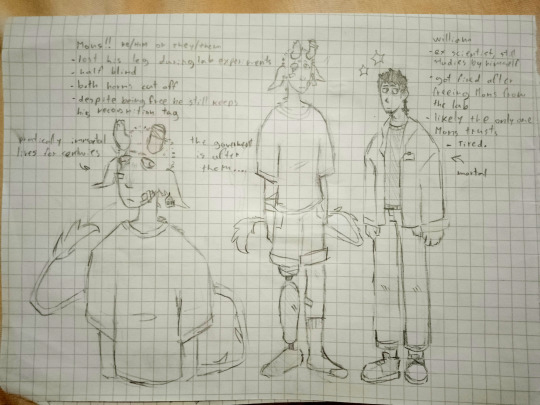 Mars!! he/him or they/them
- lost his leg during lab experiments
- half blind
- both horns cut off
- despite being free he still keeps
his tag
practically immortal
lives for centuries
the government
is after
them....
william
- ex scientist, still
studies by himself
- got fired after
freeing Mars from
the lab
- likely the only one
Mars trusts
- Tired.
mortal